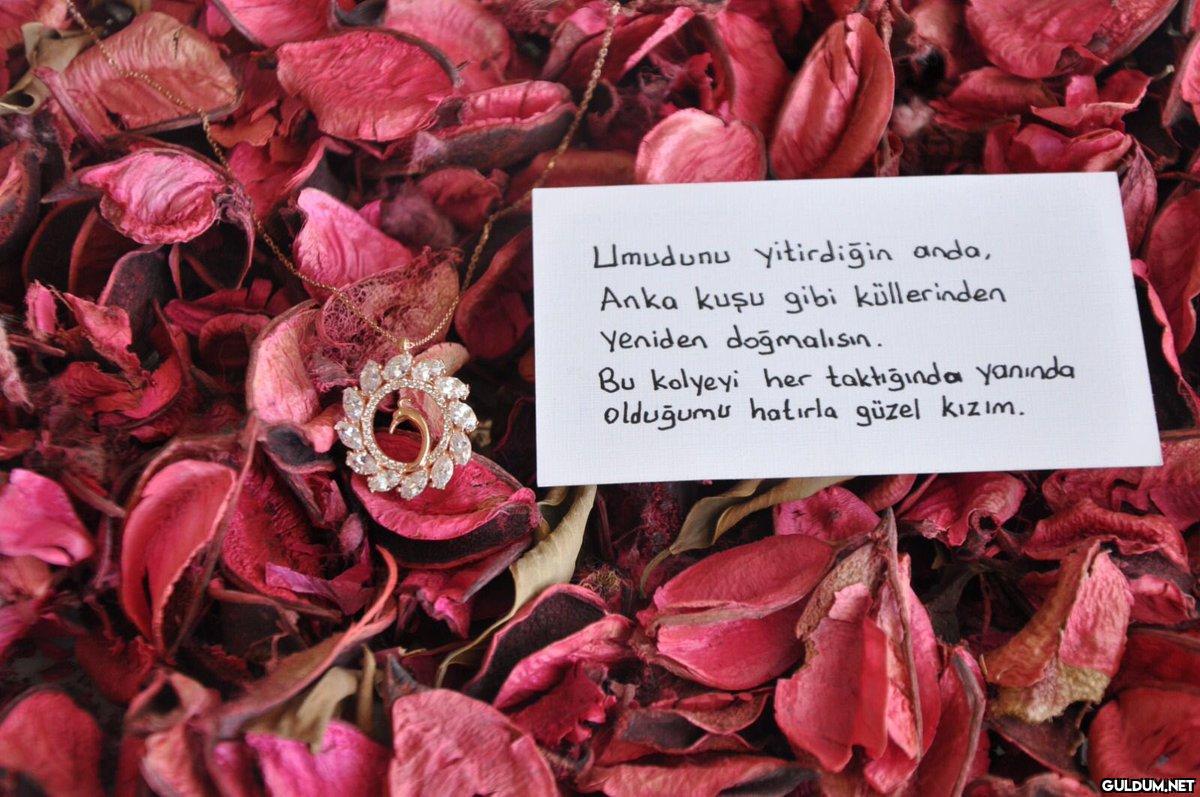 Umudunu yitirdiğin anda,
Anka kuşu gibi küllerinden
yeniden doğmalısın.
Bu kolyeyi her taktığında yanında
olduğumu hatırla güzel kızım.
GULDUM.NET